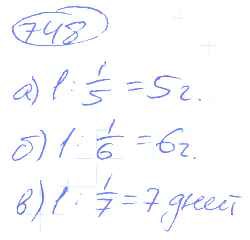 748
а) 1 : 1/5 = 5 г.
б) 1 : 1/6 = 6 г.
в) 1 : 1/7 = 7 дней